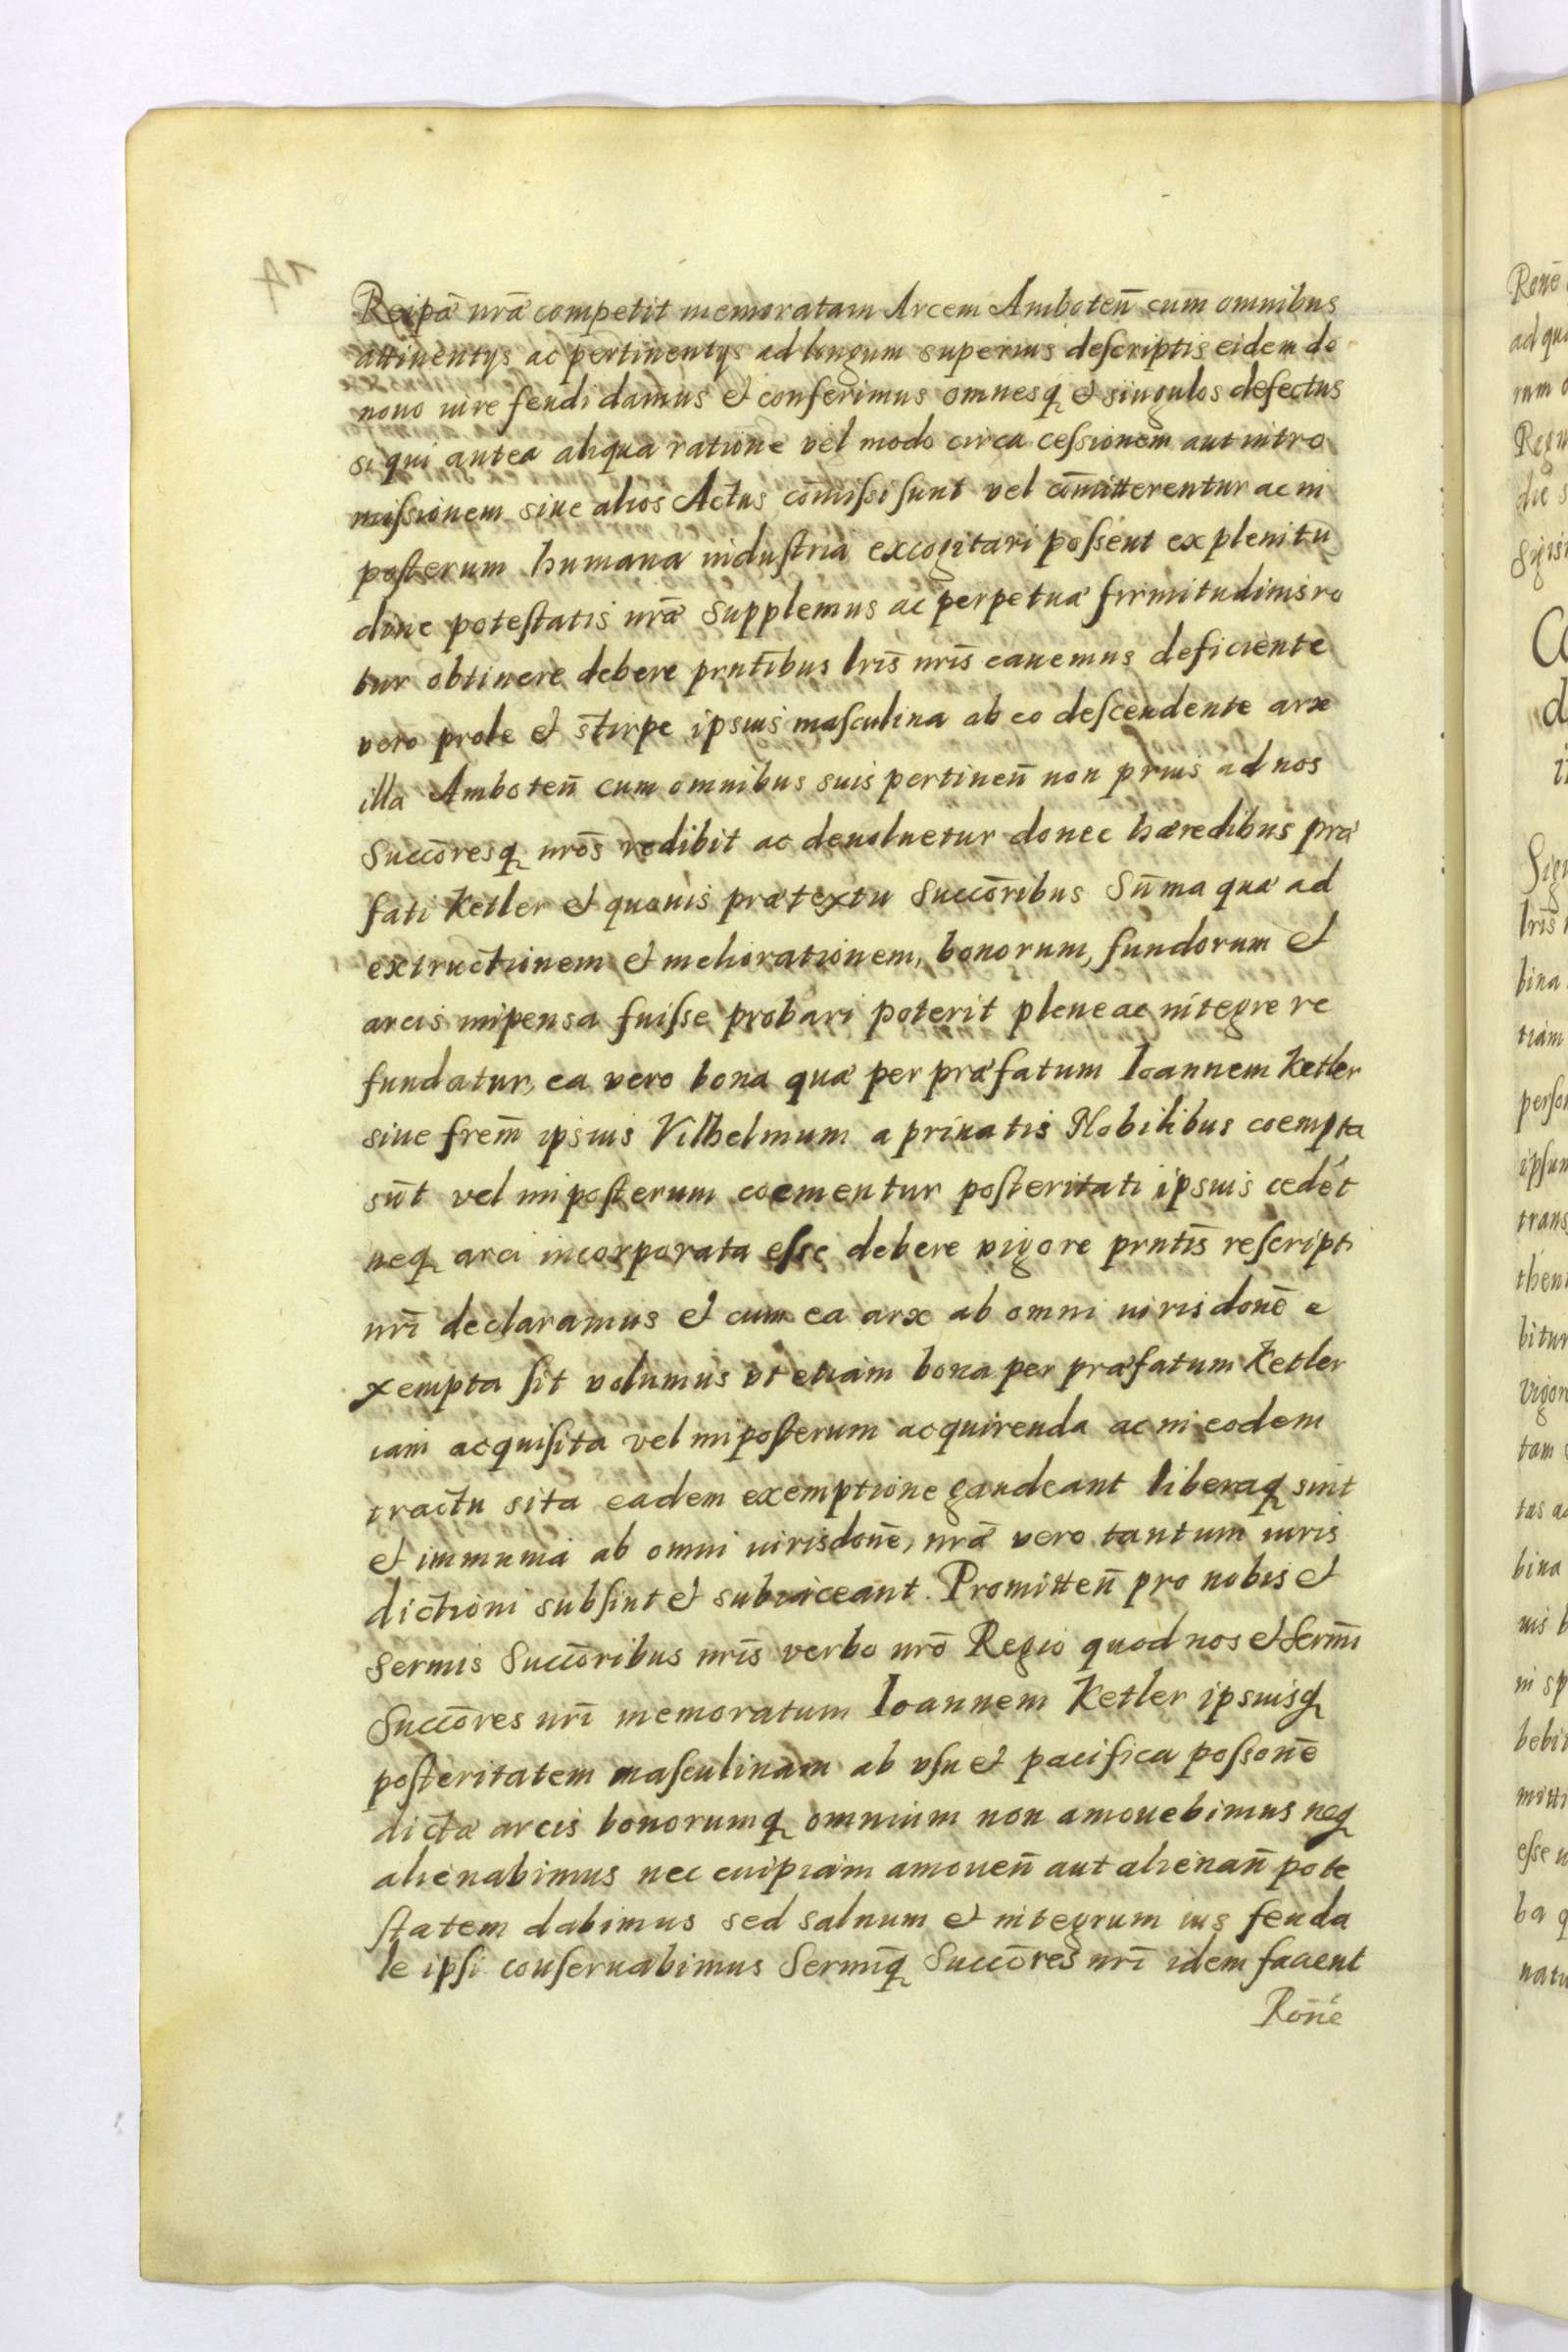 Reipã nrã competit memoratam Arcem Amboteñ cum omnibus
attinentijs ac pertinentijs ad longum superius descriptis eidem de
nouo iure feudi damus et conferimus omnesq et singulos defectus
si qui antea aliqua ratione vel modo circa cessionem aut intro
missionem siue alios Actus cõmissi sunt vel cõmitterentur ac in
posterum humana industria excogitari possent ex plenitu
dine potestatis nrã supplemus ac perpetuæ firmitudinis ro
bur obtinere debere prntibus lris nris cauemus deficiente
vero prole et stirpe ipsius masculina ab eo descendente arx
illa Amboteñ cum omnibus suis pertineñ non prius ad nos
Succõresq nrõs redibit ac deuoluetur donec hæredibus præ
fati Ketler et quouis prætextu Succõribus Sũma quæ ad
extructionem et meliorationem, bonorum, fundorum et
arcis impensa fuisse probari poterit plene ac integre re
fundatur, ea vero bona quæ per præfatum Ioannem Ketler
siue frem̃ ipsius Vilhelmum a priuatis Nobilibus coempta
sũt vel in posterum coementur posteritati ipsius cedẽt
neq arci incorporata esse debere vigore prntis rescripti
nri declaramus et cum ea arx ab omni iurisdonẽ e
xempta sit volumus vt etiam bona per præfatum Ketler
iam acquisita vel in posterum acquirenda ac in eodem
tractu sita eadem exemptione gaudeant liberaq sint
et immunia ab omni iurisdonẽ, nrã vero tantum iuris
dictioni subsint et subiaceant. Promitteñ pro nobis et
Sermis Succõribus nris verbo nrõ Regio quod nos et Serm̃i
Succõres nri memoratum Ioannem Ketler ipsiusq
posteritatem masculinam ab vsu et pacifica possonẽ
dictæ arcis bonorumq omnium non amouebimus neq
alienabimus nec cuipiam amoueñ aut alienañ pote
statem dabimus sed saluum et integrum ius feuda
le ipsi conseruabimus Sermiq Succõres nri idem facient
Ronẽ